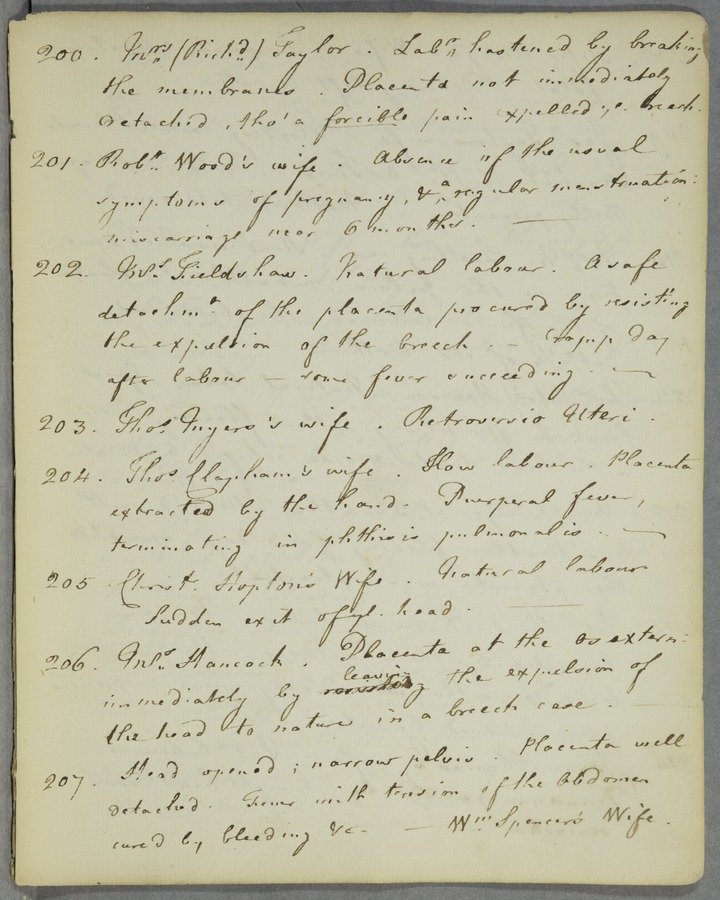 200. Mrs (Richd) Taylor. Labr hastened by breaking
the membranes. Placenta not immediately
detached, tho' a forcible pain expelled ye breech.
201. Robt Wood's wife. Absence of the usual
symptoms of pregnancy, & a regular menstruation:
miscarriage near 6 months.
202. Mrs Fieldshaw. Natural labour. A safe
detachmt of the placenta procured by resisting
the expulsion of the breech. — day
after labour — some fever succeeding. —
203. Thos Myers's wife. Retroversio Uteri.
204. Thos Clapham's wife. Slow labour. Placenta
extracted by the hand. Puerperal fever,
terminating in phthisis pulmonalis. —
205 Christr Hopton's Wife. Natural labour
Sudden exit of ye head. —
206. Mrs Hancock. Placenta at the os extern:
immediately by leaving the expulsion of
the head to nature in a breech case. —
207. Head opened; narrow pelvis. Placenta well
detached. Fever with tension of the Abdomen
cured by bleeding &c — Wm Spencer's Wife.